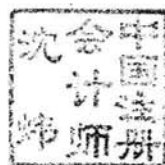 中国注册
会计师
沈炜